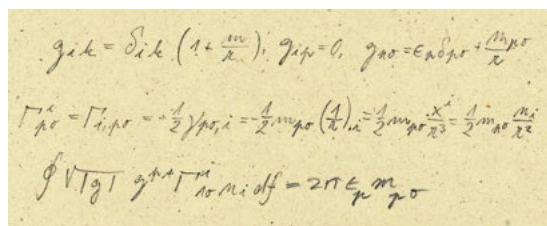 g_{ik} = δ_{ik} (1 + m/r), g_{ip} = 0, g_{ρσ} = ε_ρ δ_{ρσ} + m_{ρσ}/r
Γ^i_{ρσ} = Γ_{i,ρσ} = -1/2 γ_{ρσ,i} = -1/2 m_{ρσ} (1/r)_{,i} = 1/2 m_{ρσ} x^i/r^3 = 1/2 m_{ρσ} n_i/r^2
∮ √|g| n_i df = 2π ε_ρ m_{ρσ}